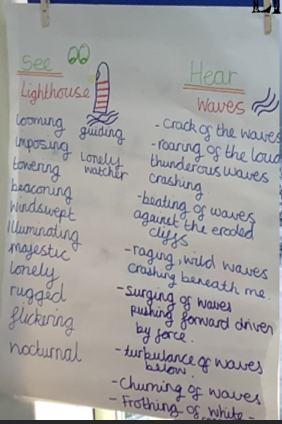 See
Lighthouse
looming
imposing
towering
beaconing
windswept
illuminating
majestic
lonely
rugged
flickering
nocturnal
guiding
lonely
watcher
Hear
Waves
- crack of the waves
- roaring of the loud
thunderous waves
crashing
- beating of waves
against the eroded
cliffs
- raging, wild waves
crashing beneath me.
- Surging of waves
pushing forward driven
by force.
- turbulance of waves
below.
- Churning of waves
- Frothing of white -